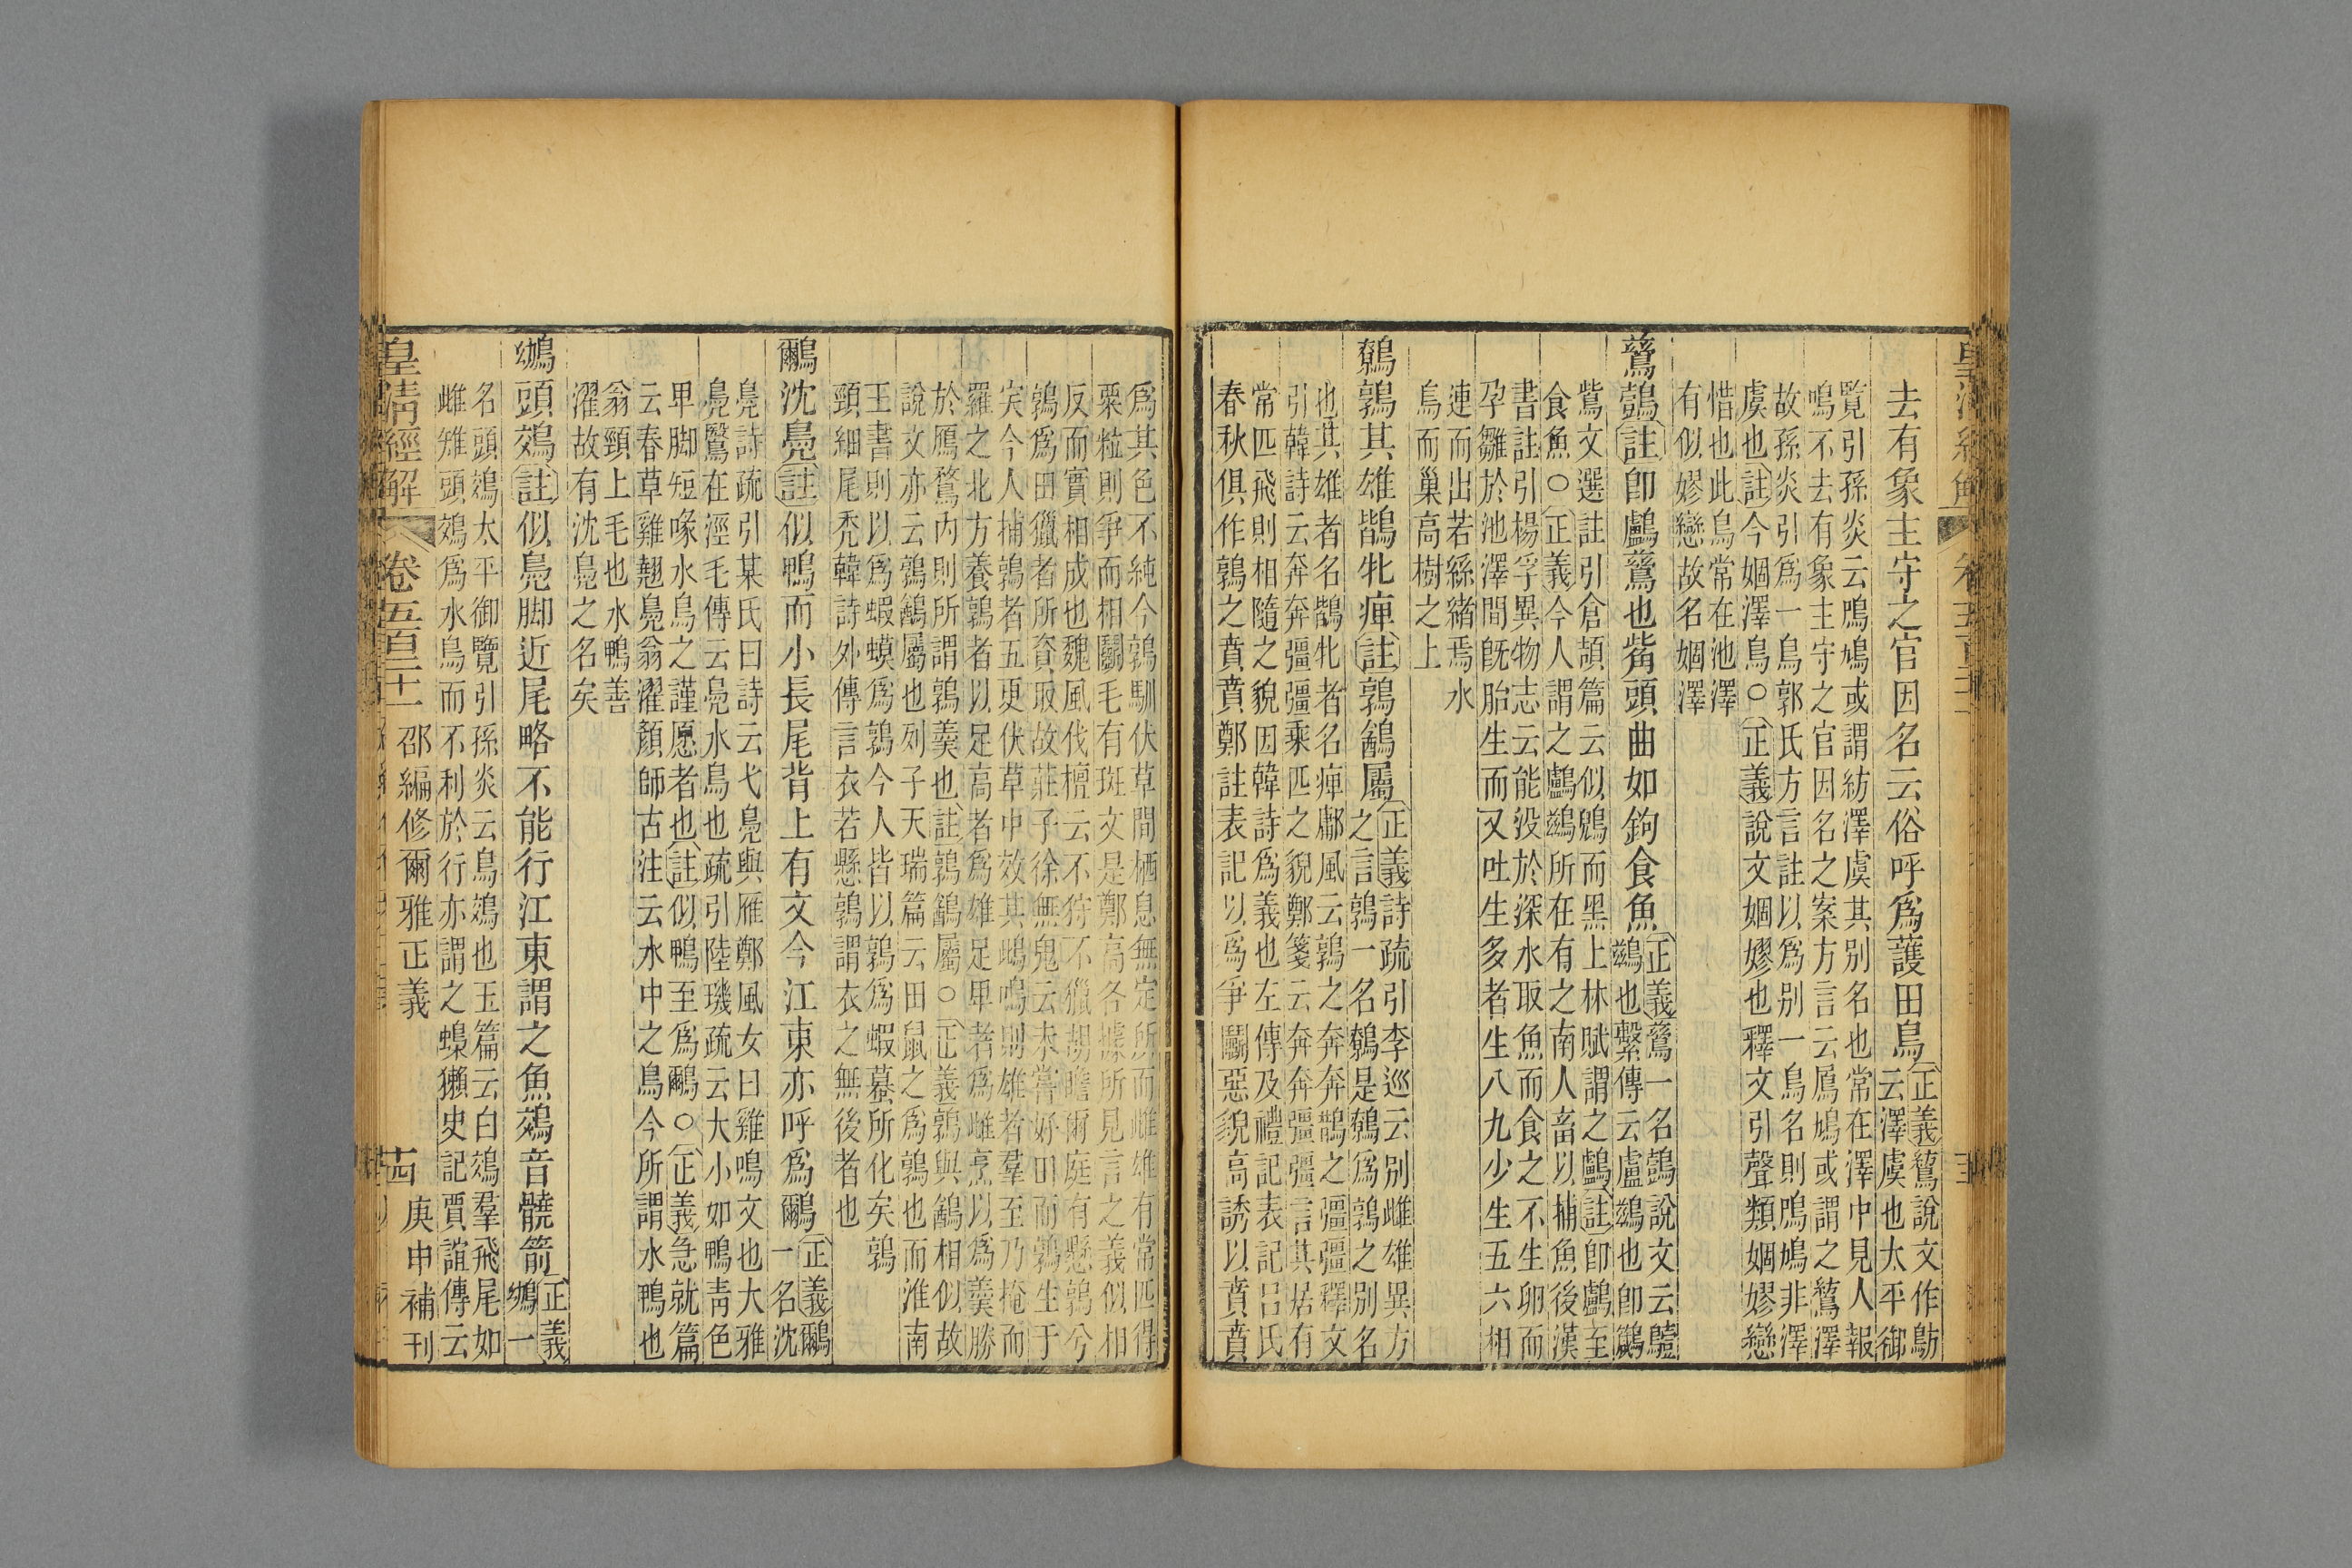 去有象主守之官因名云俗呼爲護田鳥正義鶭說文作鴋
云澤虞也太平御
覽引孫炎云鳲鳩或謂紡澤虞其別名也常在澤中見人報
鳴不去有象主守之官因名之案方言云鳲鳩或謂之鶭澤
故孫炎引爲一鳥郭氏方言註以爲別一鳥名則鳲鳩非澤
虞也註今婟澤鳥○正義說文婟嫪也釋文引聲類婟嫪戀
惜也此鳥常在池澤
有似嫪戀故名婟澤
鶿鷧註卽鸕鶿也觜頭曲如鉤食魚正義鶿一名鷧說文云鷧
鷀也繫傳云盧鷀也卽鷀
鴜文選註引倉頡篇云似鷁而黑上林賦謂之鸕註卽鸕至
食魚○正義今人謂之鸕鷀所在有之南人畜以捕魚後漢
書註引楊孚異物志云能没於深水取魚而食之不生卵而
孕雛於池澤間旣胎生而又吐生多者生八九少生五六相
連而出若絲緒焉水
鳥而巢高樹之上
鷯鶉其雄鶛牝痺註鶉䳺屬正義詩疏引李巡云別雌雄異方
之言鶉一名鷯是鷯爲鶉之別名
也其雄者名鶛牝者名痺鄘風云鶉之奔奔鵲之彊彊釋文
引韓詩云奔奔彊彊乘匹之貌鄭箋云奔奔彊彊言其居有
常匹飛則相隨之貌因韓詩爲義也左傳及禮記表記呂氏
春秋俱作鶉之賁賁鄭註表記以爲爭鬭惡貌高誘以賁賁
爲其色不純今鶉馴伏草間栖息無定所而雌雄有常匹得
粟粒則爭而相鬭毛有斑文是鄭高各據所見言之義似相
反而實相成也魏風伐檀云不狩不獵胡瞻爾庭有懸鶉兮
鶉爲田獵者所資取故莊子徐無鬼云未嘗好田而鶉生于
宎今人捕鶉者五更伏草中效其鳴鳴則雄者羣至乃掩而
羅之北方養鶉者以足高者爲雄足卑者爲雌烹以爲羹勝
於鴈鶩内則所謂鶉羹也註鶉䳺屬○正義鶉與䳺相似故
說文亦云鶉䳺屬也列子天瑞篇云田鼠之爲鶉也而淮南
王書則以爲蝦蟆爲鶉今人皆以鶉爲蝦蟇所化矣鶉
頸細尾秃韓詩外傳言衣若懸鶉謂衣之無後者也
鸍沈鳧註似鴨而小長尾背上有文今江東亦呼爲鸍正義鸍
一名沈
鳧詩疏引某氏曰詩云弋鳧與雁鄭風女曰雞鳴文也大雅
鳧鷖在涇毛傳云鳧水鳥也疏引陸璣疏云大小如鴨靑色
卑脚短喙水鳥之謹愿者也註似鴨至爲鸍○正義急就篇
云春草雞翹鳧翁濯顏師古注云水中之鳥今所謂水鴨也
翁頸上毛也水鴨善
濯故有沈鳧之名矣
鴢頭鵁註似鳧脚近尾略不能行江東謂之魚鵁音髐箭正義
鴢一
名頭鵁太平御覽引孫炎云鳥鵁也玉篇云白鵁羣飛尾如
雌雉頭鵁爲水鳥而不利於行亦謂之蟂獺史記賈誼傳云
皇淸經解 卷五百二十一 邵編修爾雅正義 十四 庚申補刊